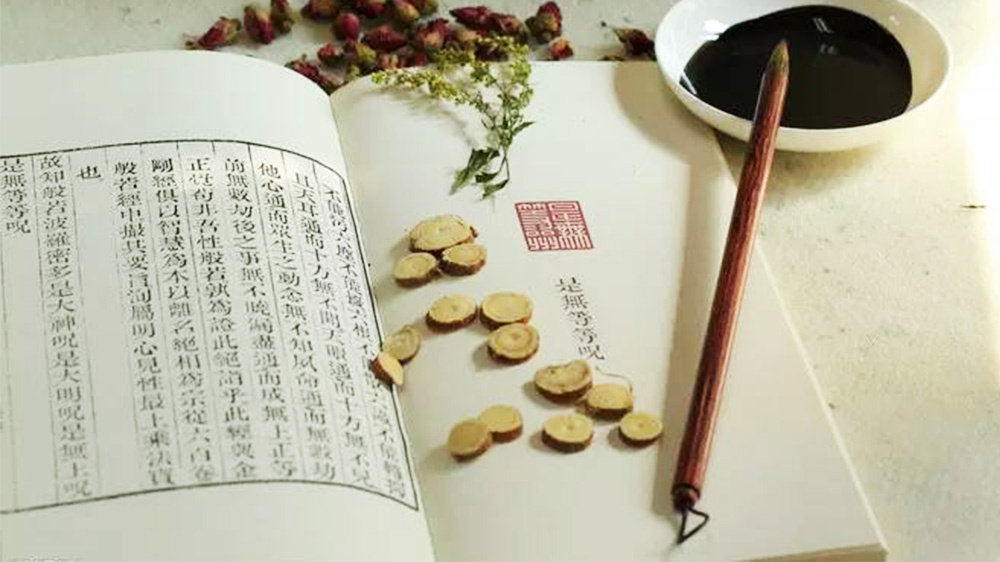 是無等等呪
六塵不能
且天耳通而十方無不聞天眼通而十方無不見
他心通而眾生之動念無不知夙命通而無數劫
前無數劫後之事無不曉漏盡通而成無上正等
正覺苟非吾性般若孰為證此絕語乎此經與金
剛經俱以智慧為本以離名絕相為宗從六百卷
般若經中撮其要言洵屬明心見性最上乘法寶
也
故知般若波羅密多是大神呪是大明呪是無上呪
是無等等呪